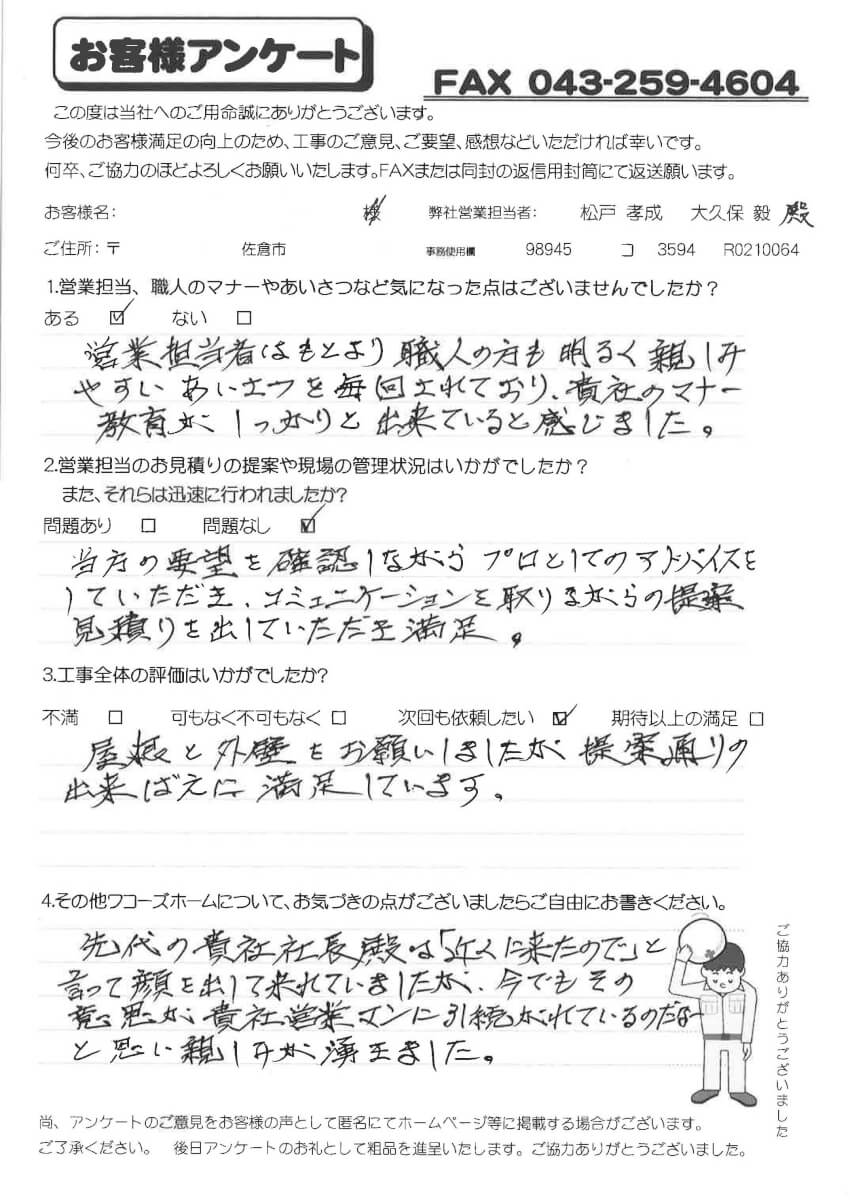 お客様アンケート
FAX 043-259-4604
この度は当社へのご用命誠にありがとうございます。
今後のお客様満足の向上のため、工事のご意見、ご要望、感想などいただければ幸いです。
何卒、ご協力のほどよろしくお願いいたします。FAXまたは同封の返信用封筒にて返送願います。
お客様名: 様 弊社営業担当者: 松戸 孝成 大久保 毅 殿
ご住所:〒 佐倉市 事務使用欄 98945 コ 3594 R0210064
1.営業担当、職人のマナーやあいさつなど気になった点はございませんでしたか?
ある ☑ ない □
営業担当者はもとより職人の方も明るく親しみ
やすいあいさつを毎回されており、貴社のマナー
教育がしっかりと出来ていると感じました。
2.営業担当のお見積りの提案や現場の管理状況はいかがでしたか?
また、それらは迅速に行われましたか?
問題あり □ 問題なし ☑
当方の要望を確認しながらプロとしてのアドバイスを
していただき、コミュニケーションを取りながらの提案
見積りを出していただき満足。
3.工事全体の評価はいかがでしたか?
不満 □ 可もなく不可もなく □ 次回も依頼したい ☑ 期待以上の満足 □
屋根と外壁をお願いしましたが提案通りの
出来ばえに満足しています。
4.その他ワコーズホームについて、お気づきの点がございましたらご自由にお書きください。
先代の貴社社長殿は「近くに来たので」と
言って顔を出して来れていましたが、今でもその
意思が貴社営業マンに引続がれているのだなー
と思い親しみが湧きました。
ご協力ありがとうございました
尚、アンケートのご意見をお客様の声として匿名にてホームページ等に掲載する場合がございます。
ご了承ください。 後日アンケートのお礼として粗品を進呈いたします。ご協力ありがとうございました。